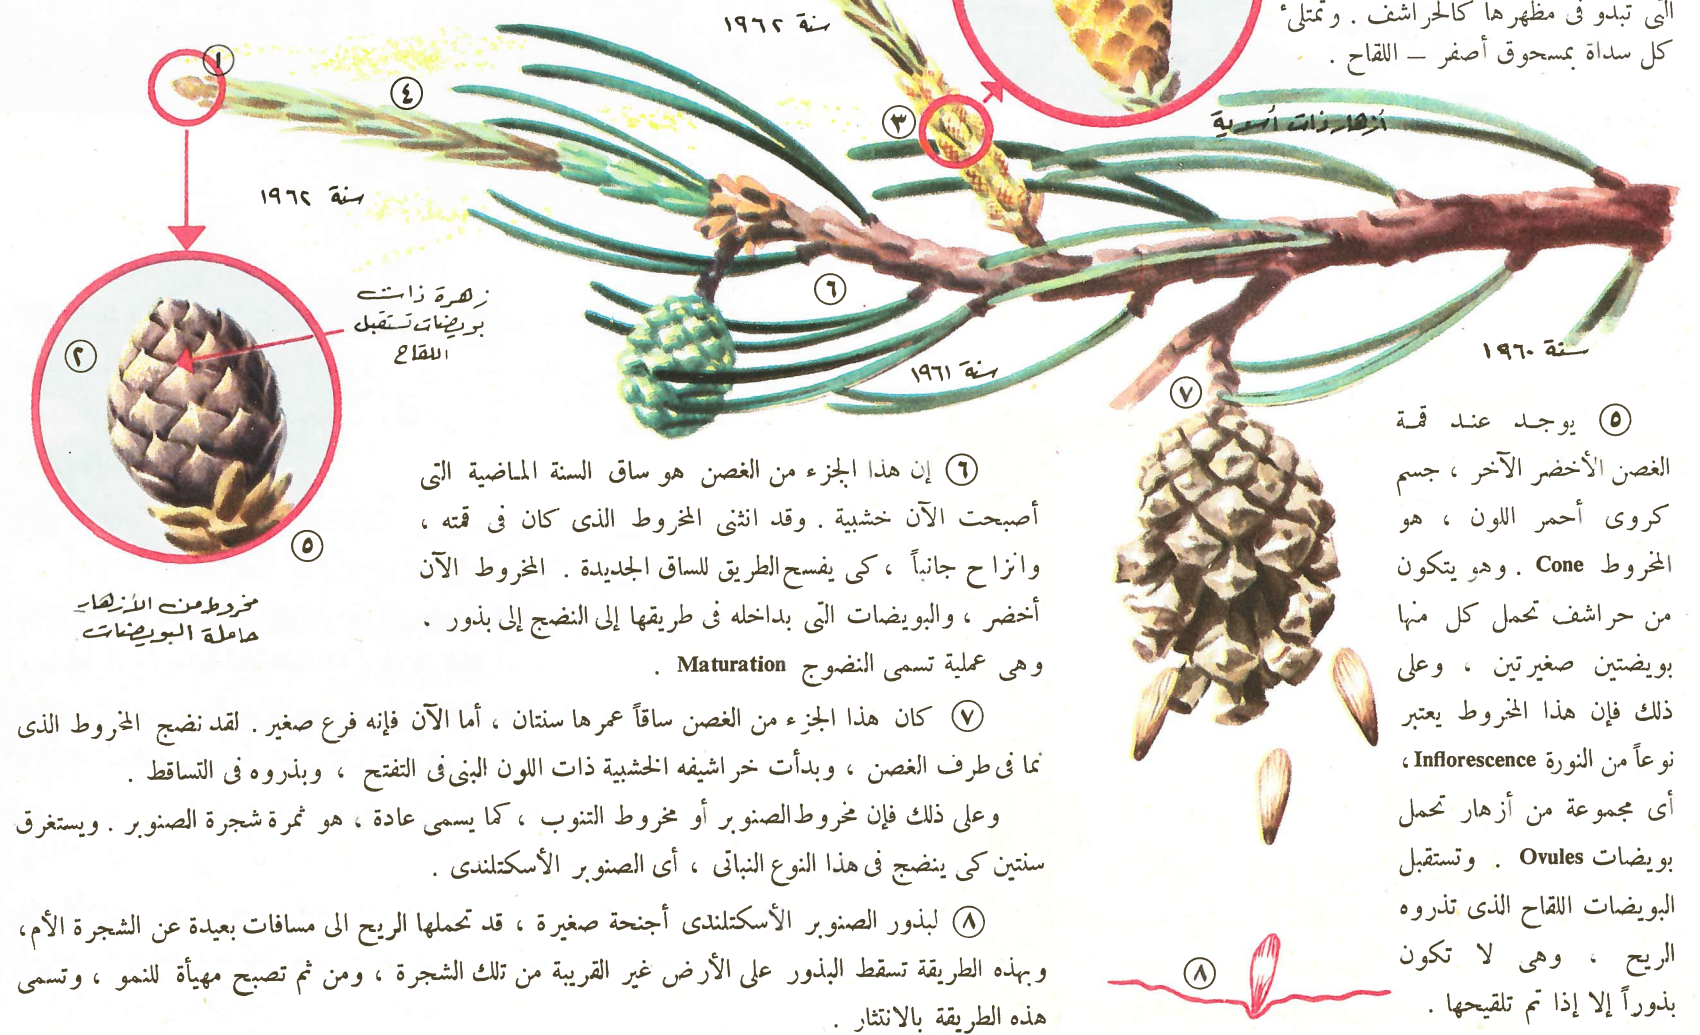 التى تبدو فى مظهرها كالحراشف . وتمتلىء
كل سداة بمسحوق أصفر – اللقاح .
سنة ١٩٦٢
١
٤
٣
أزهار ذات أسدية
سنة ١٩٦٢
زهرة ذات
بويضات تستقبل
اللقاح
٢
٥
مخروط من الأزهار
حاملة البويضات
٦
سنة ١٩٦١
سنة ١٩٦٠
٧
٥ يوجد عند قمة
الغصن الأخضر الآخر ، جسم
كروى أحمر اللون ، هو
المخروط Cone . وهو يتكون
من حراشف تحمل كل منها
بويضتين صغيرتين ، وعلى
ذلك فإن هذا المخروط يعتبر
نوعاً من النورة Inflorescence ،
أى مجموعة من أزهار تحمل
بويضات Ovules . وتستقبل
البويضات اللقاح الذى تذروه
الريح ، وهى لا تكون
بذوراً إلا إذا تم تلقيحها .
٦ إن هذا الجزء من الغصن هو ساق السنة الماضية التى
أصبحت الآن خشبية . وقد انثنى المخروط الذى كان فى قمته ،
وانزاح جانباً ، كى يفسح الطريق للساق الجديدة . المخروط الآن
أخضر ، والبويضات التى بداخله فى طريقها إلى النضج إلى بذور .
وهى عملية تسمى النضوج Maturation .
٧ كان هذا الجزء من الغصن ساقاً عمرها سنتان ، أما الآن فإنه فرع صغير . لقد نضج المخروط الذى
نما فى طرف الغصن ، وبدأت حراشيفه الخشبية ذات اللون البنى فى التفتح ، وبذروه فى التساقط .
وعلى ذلك فإن مخروط الصنوبر أو مخروط التنوب ، كما يسمى عادة ، هو ثمرة شجرة الصنوبر . ويستغرق
سنتين كى ينضج فى هذا النوع النباتى ، أى الصنوبر الأسكتلندى .
٨ لبذور الصنوبر الأسكتلندى أجنحة صغيرة ، قد تحملها الريح الى مسافات بعيدة عن الشجرة الأم ،
وبهذه الطريقة تسقط البذور على الأرض غير القريبة من تلك الشجرة ، ومن ثم تصبح مهيأة للنمو ، وتسمى
هذه الطريقة بالانتثار .
٨